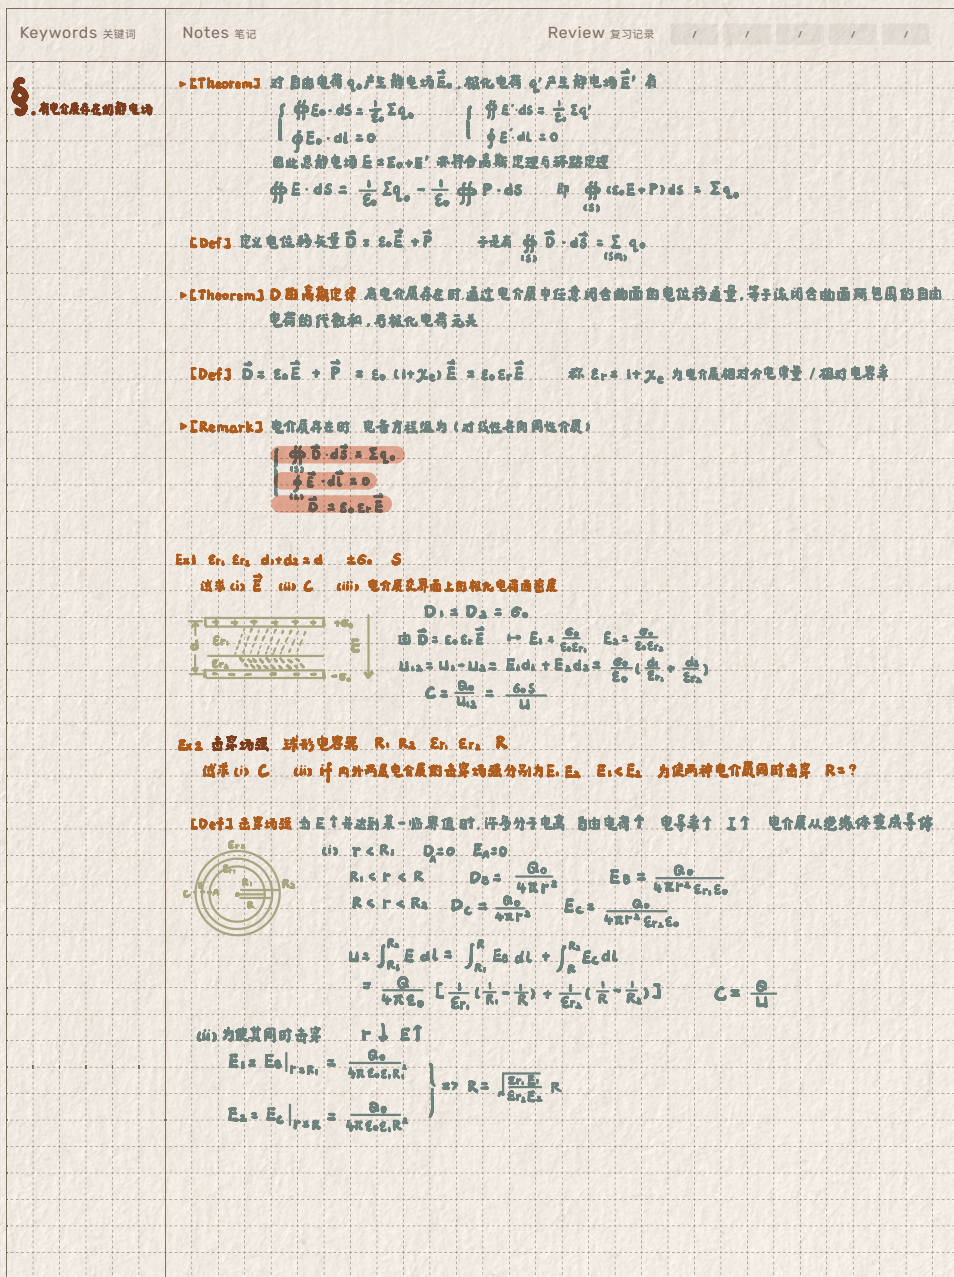 Keywords 关键词 Notes 笔记 Review 复习记录 / / / / /
§.有电介质存在的静电场
▸[Theorem] 对自由电荷 q₀产生静电场E⃗₀,极化电荷 q'产生静电场E⃗' 有
∯E₀·dS = 1/ε₀ Σq₀ ∯E'·dS = 1/ε₀ Σq'
∮E₀·dl = 0 ∮E'·dl = 0
因此总静电场 E = E₀+E' 亦符合高斯定理与环路定理
∯E·dS = 1/ε₀ Σq₀ - 1/ε₀ ∯P·dS 即 ∯(S) (ε₀E+P)dS = Σq₀
[Def] 定义电位移矢量 D⃗ = ε₀E⃗ + P⃗ 于是有 ∯(S) D⃗·dS⃗ = Σ(S内) q₀
▸[Theorem] D的高斯定律 有电介质存在时,通过电介质中任意闭合曲面的电位移通量,等于该闭合曲面所包围的自由
电荷的代数和,与极化电荷无关
[Def] D⃗ = ε₀E⃗ + P⃗ = ε₀(1+χe)E⃗ = ε₀εrE⃗ 称 εr = 1+χe 为电介质相对介电常量/相对电容率
▸[Remark] 电介质存在时 完备方程组为(对线性各向同性介质)
∯(S) D⃗·dS⃗ = Σq₀
∮(L) E⃗·dl⃗ = 0
D⃗ = ε₀εrE⃗
Ex1 εr₁ εr₂ d₁+d₂=d ±σ₀ S
试求(i) E⃗ (ii) C (iii) 电介质交界面上的极化电荷面密度
D₁ = D₂ = σ₀
+σ₀ d εr₁ εr₂ E -σ₀
由 D⃗ = ε₀εrE⃗ ↦ E₁ = σ₀/ε₀εr₁ E₂ = σ₀/ε₀εr₂
u₁₂ = u₁-u₂ = E₁d₁+E₂d₂ = σ₀/ε₀ (d₁/εr₁ + d₂/εr₂)
C = Q₀/u₁₂ = σ₀S/u
Ex2 击穿场强 球形电容器 R₁ R₂ εr₁ εr₂ R
试求(i) C (ii) if 内外两层电介质的击穿场强分别为E₁ E₂ E₁<E₂ 为使两种电介质同时击穿 R=?
[Def]击穿场强 当 E↑并达到某一临界值时,许多分子电离 自由电荷↑ 电导率↑ I↑ 电介质从绝缘体变成导体
εr₂ εr₁ C B A R₁ R R₂
(i) r<R₁ D_A=0 E_A=0
R₁<r<R D_B = Q₀/4πr² E_B = Q₀/4πr²εr₁ε₀
R<r<R₂ D_C = Q₀/4πr² E_C = Q₀/4πr²εr₂ε₀
u = ∫_{R₁}^{R₂} E dl = ∫_{R₁}^{R} E_B dl + ∫_{R}^{R₂} E_C dl
= Q/4πε₀ [1/εr₁ (1/R₁ - 1/R) + 1/εr₂ (1/R - 1/R₂)] C = Q/u
(ii) 为使其同时击穿 r↓ E↑
E₁ = E_B|r=R₁ = Q₀/4πε₀ε₁R₁²
=> R = √(εr₁E₁/εr₂E₂) R
E₂ = E_C|r=R = Q₀/4πε₀ε₁R²